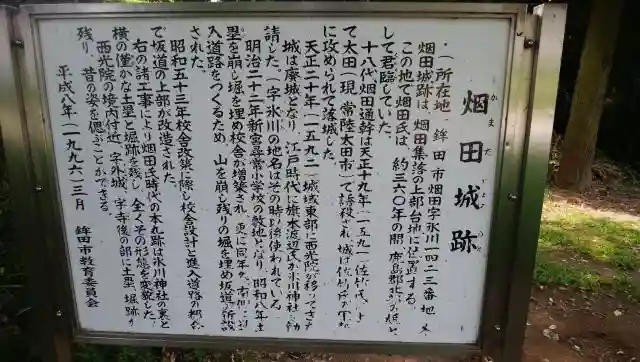 烟田城跡
かまた じょう
(所在地 鉾田市烟田字氷川一四二三番地
烟田城跡は、烟田集落の上部台地に位置する。
この地で烟田氏は、約三六〇年の間、鹿島郡北部の
して君臨していた。
十八代烟田通幹は天正十九年(一五九一)佐竹氏
て太田(現 常陸太田市)で誘殺され、城は佐竹
に攻められて落城した。
天正二十年(一五九二)城域東部に西光院が移って
城は廃城となり、江戸時代に旗本渡辺氏が氷川神社を勧
請した。(字氷川の地名はその時以後使われている。
明治二十二年新宮尋常小学校の敷地となり、昭和八年土
塁を崩し堀を埋め校舎が増築され、更に同年
入道路をつくるため、山を崩し残りの堀を埋め坂道が新設
された。
昭和五十三年校舎改築に際し校舎設計と進入道路の都合
で坂道の上部が改造された。
右の諸工事により烟田氏時代の本丸跡は氷川神社の裏と
横の僅かな土塁と堀跡を残し、全くその形態を変貌した。
西光院の境内付近、字外城、字寺後の部に土塁、堀跡が
残り、昔の姿を偲ぶことができる。
平成八年(一九九六)三月
鉾田市教育委員会